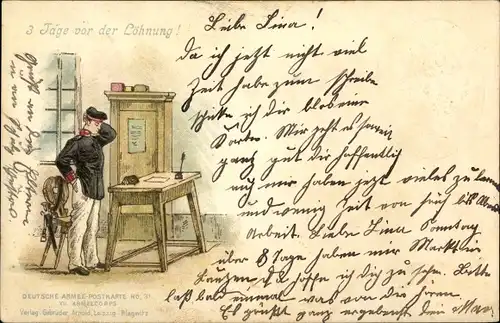 3 Tage vor der Löhnung!
Liebe Lina!
Da ich jetzt nicht viel
Zeit habe zum schreibe
schicke ich dir blos eine
Karte. Mir geht es soweit
ganz gut dir hoffentlich
wir haben jetzt vieles zu
und wenig Zeit von früh bis Abend
Arbeit. Liebe Lina Sonntag
über 8 Tage haben wir Markt in
da hoffe ich dich zu sehn. Bitte
laß bald einmal was von dir hören.
Es grüßt ganz ergebenst dein Max
DEUTSCHE-ARMEE-POSTKARTE NO.
ARMEECORPS
Verlag Gebrüder Arnold, Leipzig-Plagwitz